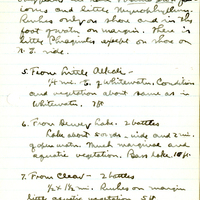 cions and little Myriophyllum.
Rushes only on shore and in the
foot of water on margin. There is
little Phragmites except on shore on
N. E. side.
5. From Little Attick -
1/4 mi. E. of Whitewater. Condition
and vegetation about same as in
Whitewater. 7 ft
6. From Dewey Lake. 2 bottles
Lake about 50 rds. wide and 2 mi.
of open water. Much marginal and
aquatic vegetation. Bass Lake 10 ft.
7. From Clear - 2 bottles
1/2 x 1 1/2 mi. Rushes on margin
little aquatic vegetation 5 ft